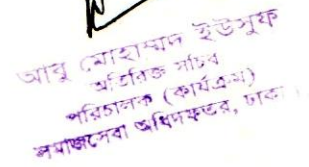 আবু মোহাম্মদ ইউসুফ
অতিরিক্ত সচিব
পরিচালক (কার্যক্রম)
সমাজসেবা অধিদফতর, ঢাকা।